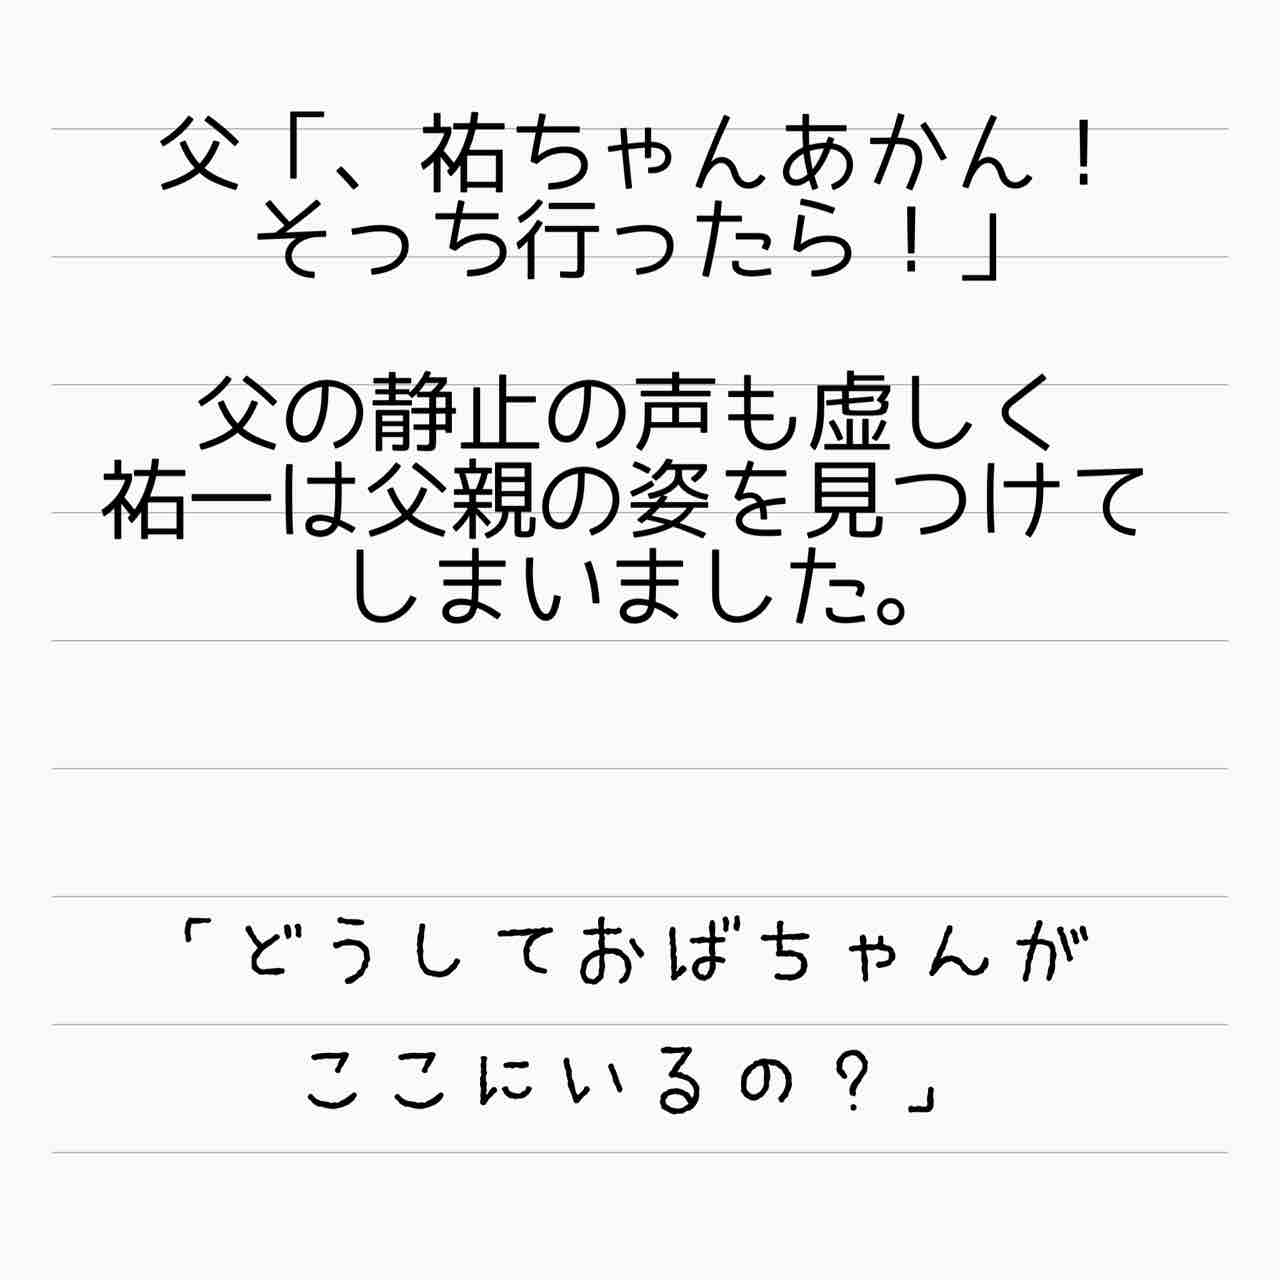 父「、祐ちゃんあかん！
そっち行ったら！」
父の静止の声も虚しく
祐一は父親の姿を見つけて
しまいました。
「どうしておばちゃんが
ここにいるの？」